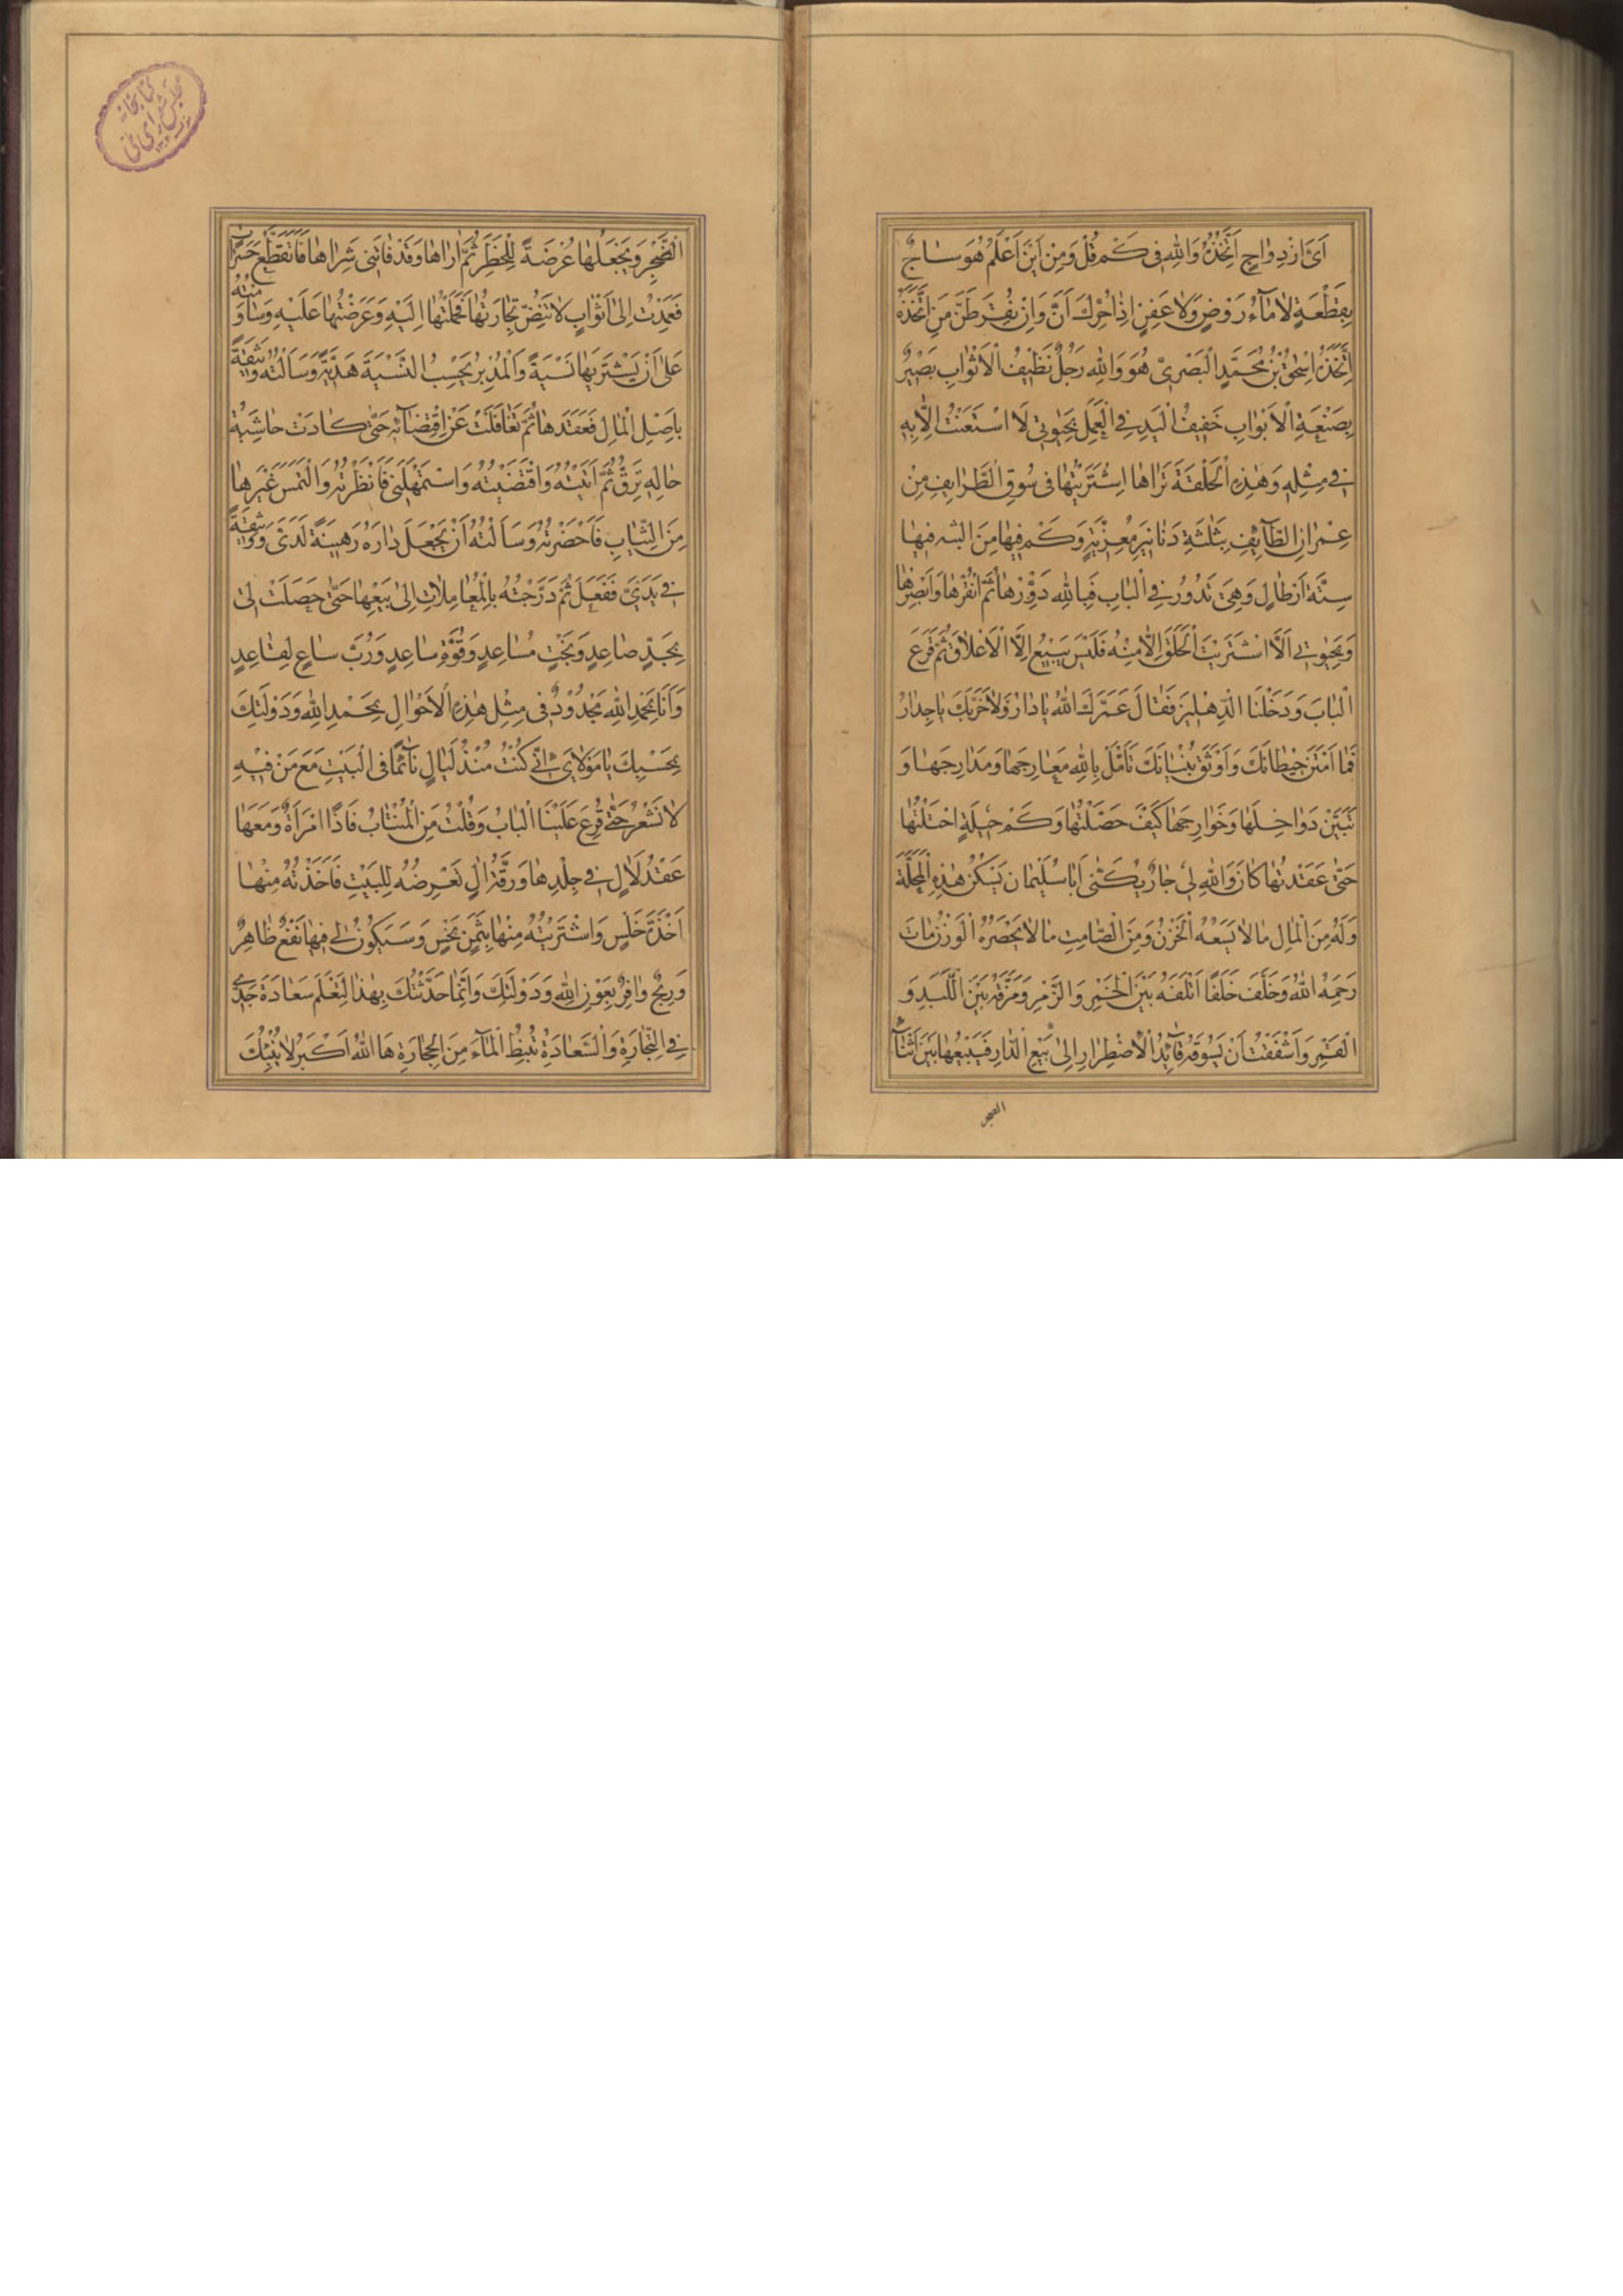 اَىَّ ازْدِوٰاجٍ اَتَّخَذَهُ وَاللهِ فى كَمْ قُلْ وَمِنْ اَيْنَ اَعْلَمُ هُوَ سٰاجٌ
بِقِطْعَةٍ لاٰ مٰآءُ رَوْضٍ وَلاٰ عَفِنٍ اِذٰا حُرِّكَ اَنَّ وَاِنْ نُقِرَ طَنَّ مَنِ اتَّخَذَهُ
اِتَّخَذَهُ اِسْحٰقُ بْنُ مُحَمَّدٍ الْبَصْرِىُّ هُوَ وَاللهِ رَجُلٌ نَظٖيفُ الْاَثْوٰابِ بَصٖيرٌ
بِصَنْعَةِ الْاَبْوٰابِ خَفٖيفُ الْيَدِ فِى الْعَمَلِ بِحَيٰوتٖى لَا اسْتَعَنْتُ اِلّٰا بِهٖ
فٖى مِثْلِهٖ وَهٰذِهِ الْحَلْقَةَ تَرٰاهٰا اِشْتَرَيْتُهٰا فى سُوقِ الطَّرٰايِفِ مِنْ
عِمْرٰانِ الطّٰآئِفِ بِثَلٰثَةِ دَنٰانٖيرَ مُعِزّٖيَّةٍ وَكَمْ فٖيهٰا مِنَ الشبه فٖيهٰا
سِتَّةُ اَرْطٰالٍ وَهِىَ تَدُورُ فِى الْبٰابِ فَبِاللهِ دَوِّرْهٰا ثُمَّ انْقُرْهٰا وَاَبْصِرْهٰا
وَبِحَيٰوتٖى اَلَّا اشْتَرَيْتَ الْحَلَقَ اِلّٰا مِنْهُ فَلَيْسَ يَبٖيعُ اِلَّا الْاَعْلٰاقَ ثُمَّ قَرَعَ
الْبٰابَ وَدَخَلْنَا الدِّهْلٖيزَ فَقٰالَ عَمَّرَكَ اللهُ يٰا دٰارُ وَلاٰ خَرَّبَكَ يٰا جِدٰارُ
فَمٰا اَمْتَنَ حٖيطٰانَكَ وَاَوْثَقَ بُنْيٰانَكَ تَأَمَّلْ بِاللهِ مَعٰارِجَهٰا وَمَدٰارِجَهٰا وَ
تَبَيَّنْ دَوٰاخِلَهٰا وَخَوٰارِجَهٰا كَيْفَ حَصَّلْتُهٰا وَكَمْ حٖيلَةٍ احْتَلْتُهٰا
حَتّٰى عَقَدْتُهٰا كٰانَ وَاللهِ لٖى جٰارٌ يُكَنّٰى اَبٰا سُلَيْمٰانَ يَسْكُنُ هٰذِهِ الْمَحَلَّةَ
وَلَهُ مِنَ الْمٰالِ مٰا لاٰ يَسَعُهُ الْخَزْنُ وَمِنَ الصّٰامِتِ مٰا لاٰ يَحْصُرُهُ الْوَزْنُ مٰاتَ
رَحِمَهُ اللهُ وَخَلَّفَ خَلَفًا اَتْلَفَهُ بَيْنَ الْخَمْرِ وَالزَّمْرِ وَمَزَّقَهُ بَيْنَ اللَّبَدِ وَ
الْقَمْرِ وَاَشْفَقْتُ اَنْ يَسُوقَهُ قٰآئِدُ الْاِضْطِرٰارِ اِلٰى بَيْعِ الدّٰارِ فَيَبٖيعُهٰا بَيْنَ اَثْنٰآءِ
الضجر
الضَّجَرِ وَيَجْعَلُهٰا عُرْضَةً لِلْخَطَرِ ثُمَّ اَرٰاهٰا وَقَدْ فٰاتَنى شِرٰاهٰا فَاَتَقَطَّعُ حَسَرٰاتٍ
فَعَمِدْتُ اِلٰى اَثْوٰابٍ لاٰ تَنِضُّ تِجٰارَتُهٰا فَحَمَلْتُهٰا اِلَيْهِ وَعَرَضْتُهٰا عَلَيْهِ وَسٰاوَمْتُهُ
عَلٰى اَنْ يَشْتَرِيَهٰا نَسْيَةً وَالْمُدْبِرُ يَحْسِبُ النَّسْيَةَ هَدِيَّةً وَسَاَلْتُهُ وَثٖيقَةً
بِاَصْلِ الْمٰالِ فَعَقَدَهٰا ثُمَّ تَغٰافَلْتُ عَنِ اقْتِضٰآئِهٖ حَتّٰى كٰادَتْ حٰاشِيَةُ
حٰالِهٖ تَرِقُّ ثُمَّ اَتَيْتُهُ وَاقْتَضَيْتُهُ وَاسْتَمْهَلَنٖى فَاَنْظَرْتُهُ وَالْتَمَسَ غَيْرَهٰا
مِنَ الثِّيٰابِ فَاَحْضَرْتُهُ وَسَاَلْتُهُ اَنْ يَجْعَلَ دٰارَهُ رَهٖينَةً لَدَىَّ وَوَثٖيقَةً
فٖى يَدَىَّ فَفَعَلَ ثُمَّ دَرَّجْتُهُ بِالْمُعٰامِلٰاتِ اِلٰى بَيْعِهٰا حَتّٰى حَصَلَتْ لٖى
بِجَدٍّ صٰاعِدٍ وَبَخْتٍ مُسٰاعِدٍ وَقُوَّةِ سٰاعِدٍ وَرُبَّ سٰاعٍ لِقٰاعِدٍ
وَاَنَا بِحَمْدِ اللهِ مَجْدُودٌ فى مِثْلِ هٰذِهِ الْاَحْوٰالِ بِحَمْدِ اللهِ وَدَوْلَتِكَ
بِحَسْبِكَ يٰا مَوْلاٰىَ اِنّٖى كُنْتُ مُنْذُ لَيٰالٍ نٰآئِمًا فِى الْبَيْتِ مَعَ مَنْ فٖيهِ
لاٰ نَشْعُرُ حَتّٰى قُرِعَ عَلَيْنَا الْبٰابُ وَقُلْتُ مَنِ الْمُنْتٰابُ فَاِذًا امْرَاَةٌ وَمَعَهٰا
عِقْدُ لَاٰلٍ فٖى جِلْدِهٰا وَرِقَّةِ اٰلٍ تَعْرِضُهُ لِلْبَيْعِ فَاَخَذْتُهُ مِنْهٰا
اَخْذَةَ خَلْسٍ وَاشْتَرَيْتُهُ مِنْهٰا بِثَمَنٍ بَخْسٍ وَسَيَكُونُ لٖى فٖيهٰا نَفْعٌ ظٰاهِرٌ
وَرِبْحٌ وٰافِرٌ بِعَوْنِ اللهِ وَدَوْلَتِكَ وَاِنَّمٰا حَدَّثْتُكَ بِهٰذٰا لِتَعْلَمَ سَعٰادَةَ جَدّٖى
فِى التِّجٰارَةِ وَالسَّعٰادَةُ تُنْبِطُ الْمٰآءَ مِنَ الْحِجٰارَةِ هَا اللهُ اَكْبَرُ لاٰ يُنْبِئُكَ
كتابخانه
مجلس شورای ملی